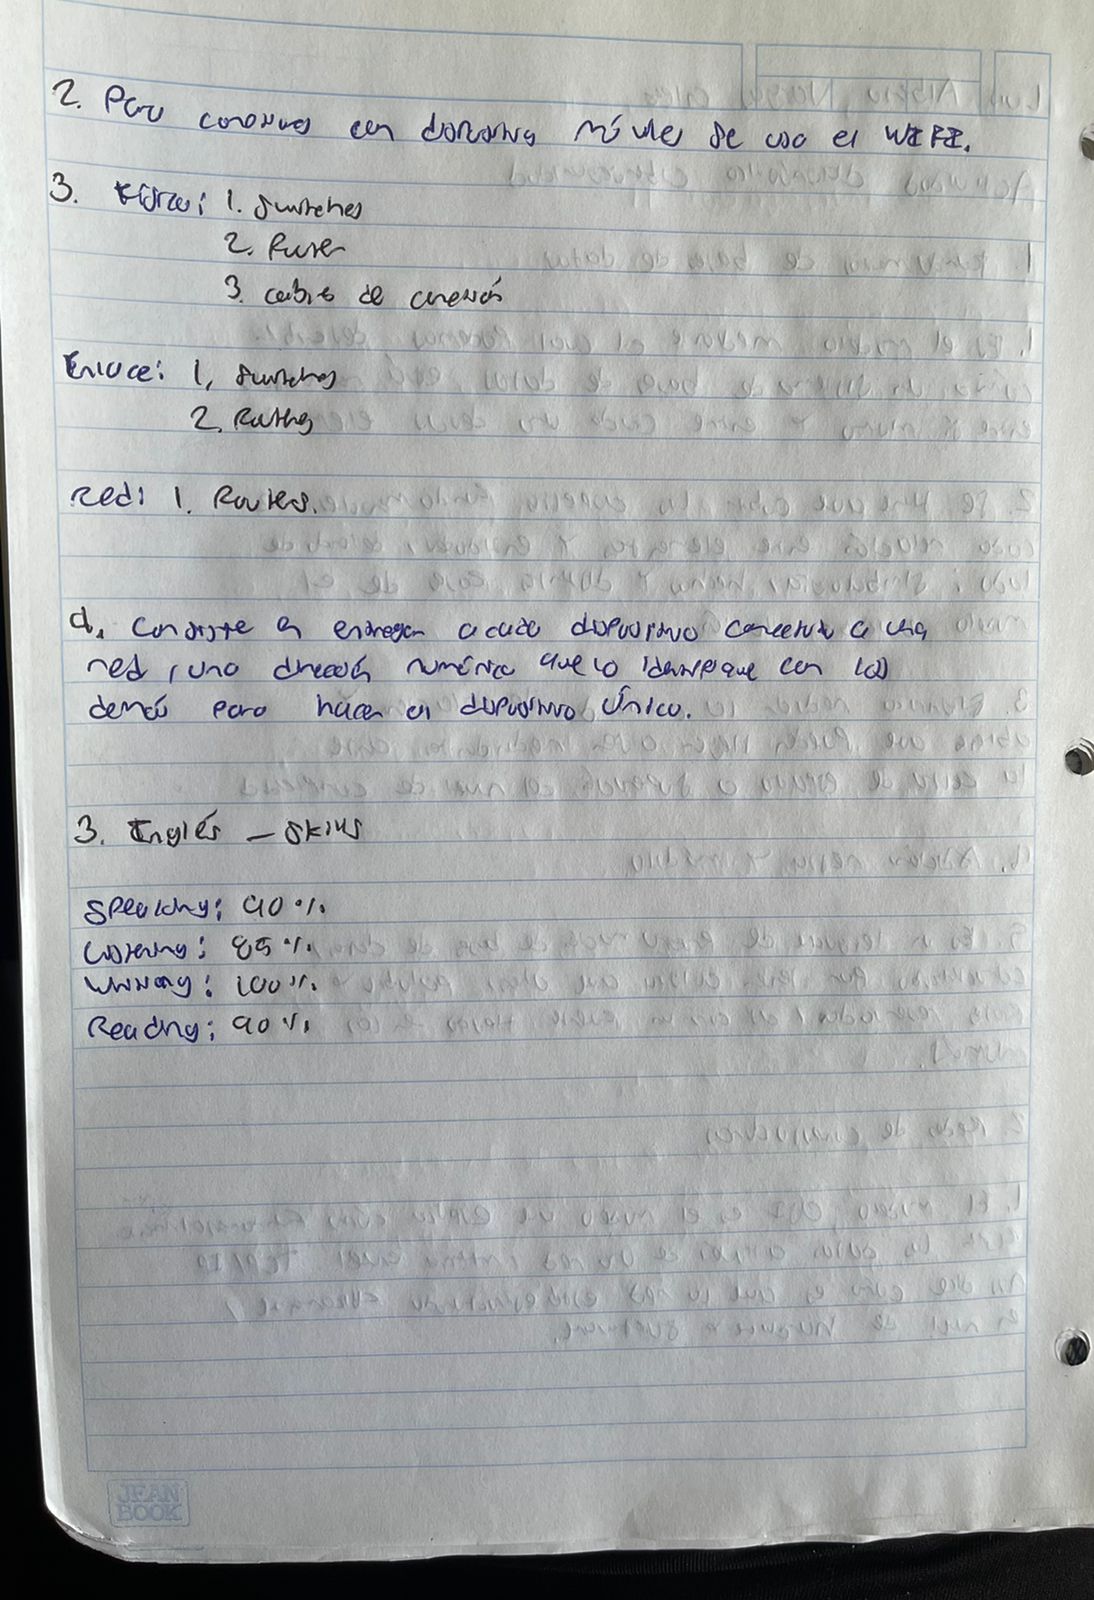 2. Para conexiones con dispositivos móviles se usa el WIFI.
3. Física: 1. Switches
2. Ruter
3. cables de conexión
Enlace: 1, Switches
2. Ruthes
Red: 1. Routes.
4. Consiste en entregar a cada dispositivo conectado a una
red, una dirección numérica que lo identifique con los
demás para hacer el dispositivo único.
3. Inglés - Skills
Speaking: 90%
Listening: 85%
Writing: 100%
Reading: 90%
JEAN
BOOK